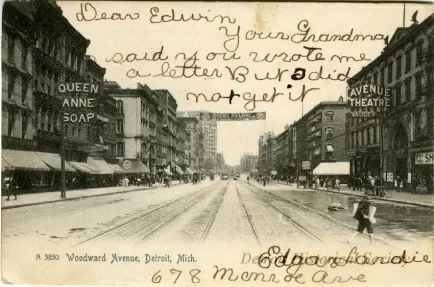 Dear Edwin
Your Grandma
said you wrote me
a letter But I did
not get it
QUEEN
ANNE
SOAP
AVENUE
THEATRE
VAUDEV
SHOE
A 3830 Woodward Avenue, Detroit, Mich.
Detroit Historical Society
Edgar Landie
678 Monroe Ave